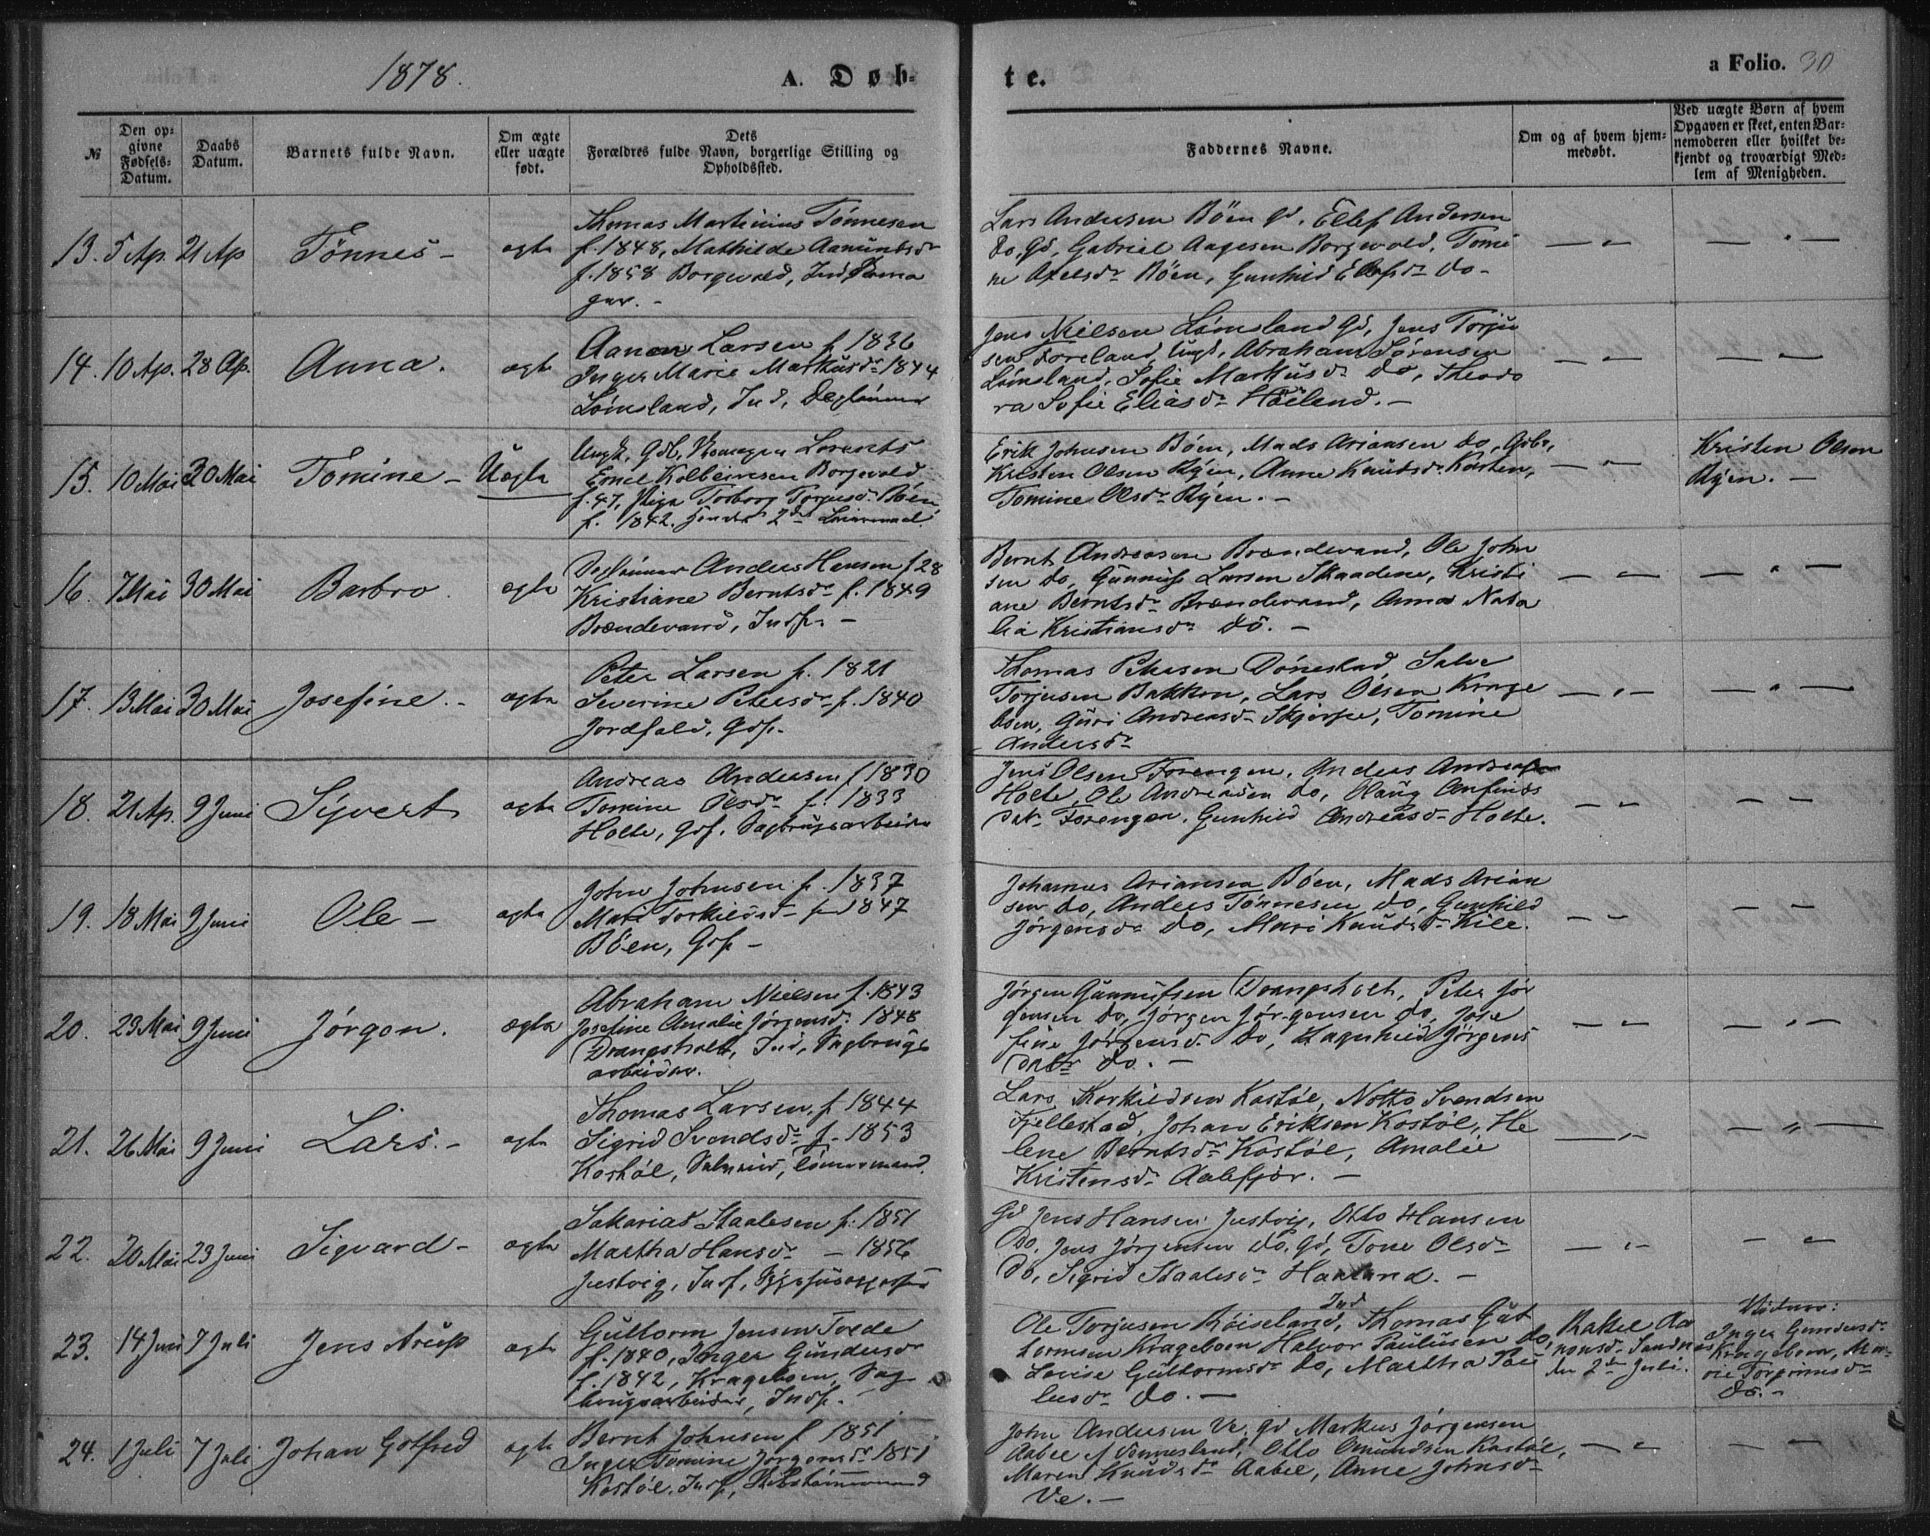 1878.
A. Døb-
te.
a Folio. 30
№
Den op-
givne
Fødsels-
Datum.
Daabs
Datum.
Barnets fulde Navn.
Om ægte
eller uægte
født.
Dets
Forældres fulde Navn, borgerlige Stilling og
Opholdssted.
Faddernes Navne.
Om og af hvem hjem-
medøbt.
Ved uægte Børn af hvem
Opgaven er skeet, enten Bar-
nemoderen eller hvilket be-
kjendt og troværdigt Med-
lem af Menigheden.
13. 5 Ap. 21 Ap Tønnes - ægte
Thomas Martinius Tønnesen
f. 1848, Mathilde Aamundsdr
f. 1858 Borgevold, Ind
Lars Andersen Bøen gd, Ellef Andersen
do. gd, Gabriel Aagesen Borgevold, Tomi
ne Axelsdr Bøen, Gunhild Ellefsdr do -
14. 10 Ap. 28 Ap. Anna. ægte
Aanon Larsen f 1836
Inger Marie Markusdr 1844
Lømsland, Ind,
Jens Nielsen Lømsland Gd, Jens Torju
sen Foreland, Ungk, Abraham Sørensen
Lømsland, Sofie Markusdr do, Theodo
ra Sofie Eliasdr Høiland. -
15. 10 Mai 30 Mai Tomine - Uægte
Emil Kolbeinsen Borgevold
f. 47, Pige Torborg Torjusdr Bøen
f. 1842. 2det Leiermaal
Erik Johnsen Bøen, Mads Ariansen do, Gdbr,
Kristen Olsen Ryen, Anne Knudsdr Kosten,
Tomine Olsdr Ryen. -
Kristen Olsen
Ryen. -
16. 7 Mai 30 Mai Barbro. ægte
Anders Hansen f 28
Kristiane Berntsdr f. 1849
Brændevand, Indf. -
Bernt Andreasen Brændevand, Ole John
sen do, Gunnuf Larsen Skaadene, Kristi
ane Berntsdr Brændevand, Anna Nata
lia Kristiansdr do. -
17. 13 Mai 30 Mai Josefine. - ægte
Peter Larsen f. 1821
Severine Petersdr f. 1840
Jordfald, Gdf.
Thomas Petersen Dønestad, Salve
Torjusen Bakken, Lars Olsen Krage
boen, Guri Andreasdr , Tomine
Andersdr
18. 21 Ap. 9 Juni Syvert ægte
Andreas Andersen f 1830
Tomine Olsdr f. 1833
Holte, Gdf. Sagbrugsarbeider
Jens Olsen Forengen, Anders Andreasen
Holte, Ole Andreasen do, Olaug Anfinds
datr Forengen, Gunhild Andreasdr Holte.
19. 18 Mai 9 Juni Ole - ægte
John Johnsen f. 1837
Mari Torkildsdr f. 1847
Bøen, Gdf -
Johannes Ariansen Bøen, Mads Arian
sen do, Anders Tønnesen do, Gunhild
Jørgensdr do, Mari Knudsdr Kile.
20. 29 Mai 9 Juni Jørgen. ægte
Abraham Nielsen f. 1843
Josefine Amalie Jørgensdr 1848
Drangsholt, Ind, Sagbrugs
arbeider.
Jørgen Gunnufsen Drangsholt, Peter Jør
gensen do, Jørgen Jørgensen do, Jose
fine Jørgensdr do, Ragnhild Jørgens
datr do. -
21. 26 Mai 9 Juni Lars. - ægte
Thomas Larsen, f 1844
Sigrid Svendsdr f. 1853
Kostøl, , tømmermand.
Lars Torkildsen Kostøl, Notto Svendsen
Fjellestad, Johan Eriksen Kostøl, He
lene Berntsdr Kostøl, Amalie
Kristensdr Aalefjær. -
22. 20 Mai 23 Juni Sigvard - ægte
Sakarias Staalesen f. 1851
Martha Hansdr - 1856
Justvig, Indf,
Gd Jens Hansen Justvig, Otto Hansen
do, Jens Jørgensen do. gd, Tone Olsdr
do, Sigrid Staalesdr Haaland. -
23. 14 Juni 7 Juli Jens Arup ægte
Guttorm Jensen Tvede
f. 1840, Inger Gundersdr
f. 1842, Krageboen, Sag
brugsarbeider, Indf.
Ind
Ole Torjusen Røiseland, Thomas Gut
tormsen Krageboen Halvor Paulusen do,
Lovise Guttormsdr do, Martha Pau
lusdr do. -
Rakel Aa
nonsdr Sandnes
den 2den Juli.
Vidner:
Inger Gundersdr
Krageboen, Ma-
ren Torjinsdr
do. -
24. 1 Juli 7 Juli Johan Gotfred ægte
Bernt Johnsen f 1851
Inger Tomine Jørgensdr 1851
Kostøl, Indf,
John Andersen Ve, gd Markus Jørgensen
Aabel af Vennesland, Otto Omundsen Kostøl,
Maren Knudsdr Aabel, Anne Johnsdr
Ve. -